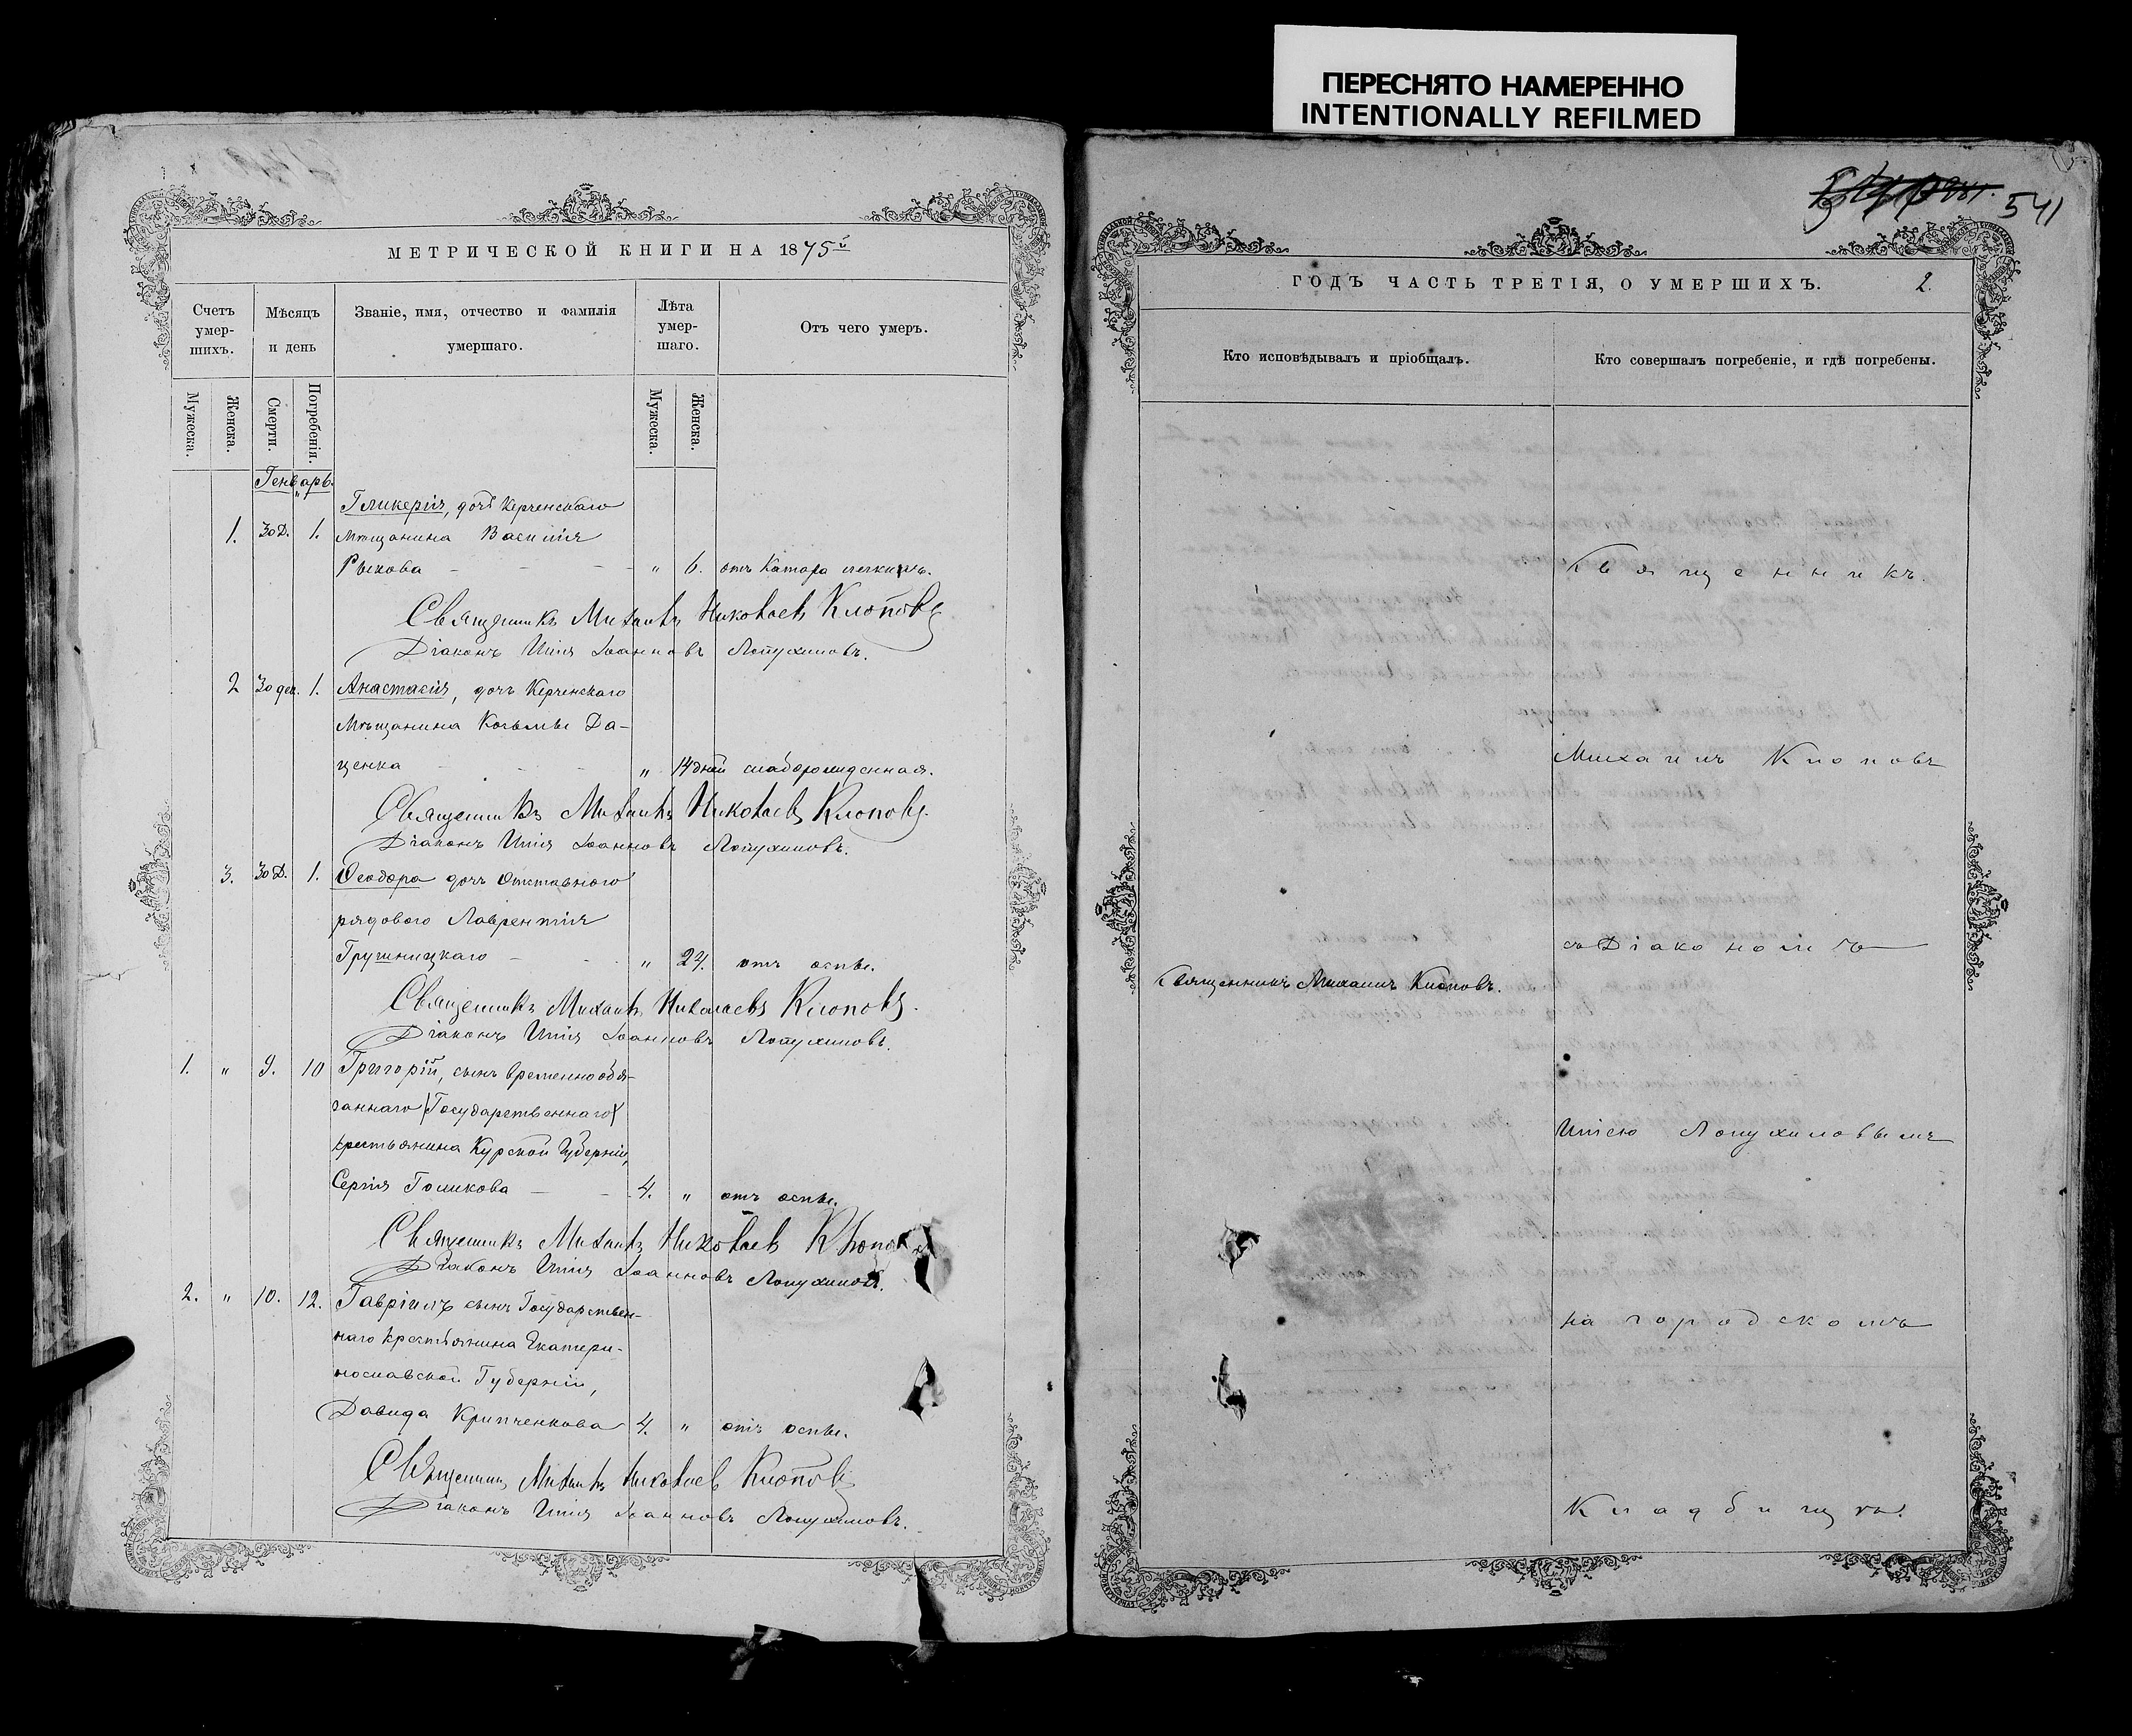 ПЕРЕСНЯТО НАМЕРЕННО
INTENTIONALLY REFILMED
МЕТРИЧЕСКОЙ КНИГИ НА 1875й
Счетъ умер-шихъ.
Мѣсяцъ и день
Званіе, имя, отчество и фамилія умершаго.
Лѣта умер-шаго.
Отъ чего умеръ.
Мужеска.
Женска.
Смерти.
Погребенія.
Мужеска.
Женска.
Генварь.
Гликерія, дочь Керченскаго
1. 30 Д. 1. мѣщанина Василія
Рыкова - - - " 6. отъ Катара легкихъ.
Священникъ Михаилъ Николаевъ Клоповъ
Діаконъ Илія Іоанновъ Лопухиновъ.
2 30 дек. 1. Анастасія, дочь Керченскаго
мѣщанина Козьмы Да-
ценка - - - " 14 дней слаборожденная.
Священникъ Михаилъ Николаевъ Клоповъ.
Діаконъ Илія Іоанновъ Лопухиновъ.
3. 30 Д. 1. Ѳеодора дочь Отставного
рядового Лаврентія
Грушницкаго - - " 24. отъ оспы.
Священникъ Михаилъ Николаевъ Клоповъ.
Діаконъ Илія Іоанновъ Лопухиновъ.
1. " 9. 10 Григорій, сынъ временнообя-
заннаго (Государственнаго)
крестьянина Курской Губерніи,
Сергія Голикова - - 4. " отъ оспы.
Священникъ Михаилъ Николаевъ
Діаконъ Илія Іоанновъ Лопухиновъ.
2. " 10. 12. Гавріилъ сынъ Государствен-
наго крестьянина Екатери-
нославской Губерніи,
Давида Крипченкова 4. " отъ оспы.
Священникъ Михаилъ Николаевъ Клоповъ
Діаконъ Илія Іоанновъ Лопухиновъ.
541
ГОДЪ ЧАСТЬ ТРЕТІЯ, О УМЕРШИХЪ. 2.
Кто исповѣдывалъ и пріобщалъ.
Кто совершалъ погребеніе, и гдѣ погребены.
Священникъ
Михаилъ Клоповъ
съ Діакономъ
Священникъ Михаилъ Клоповъ.
Иліею Лопухиновымъ
на городскомъ
Кладбищѣ.